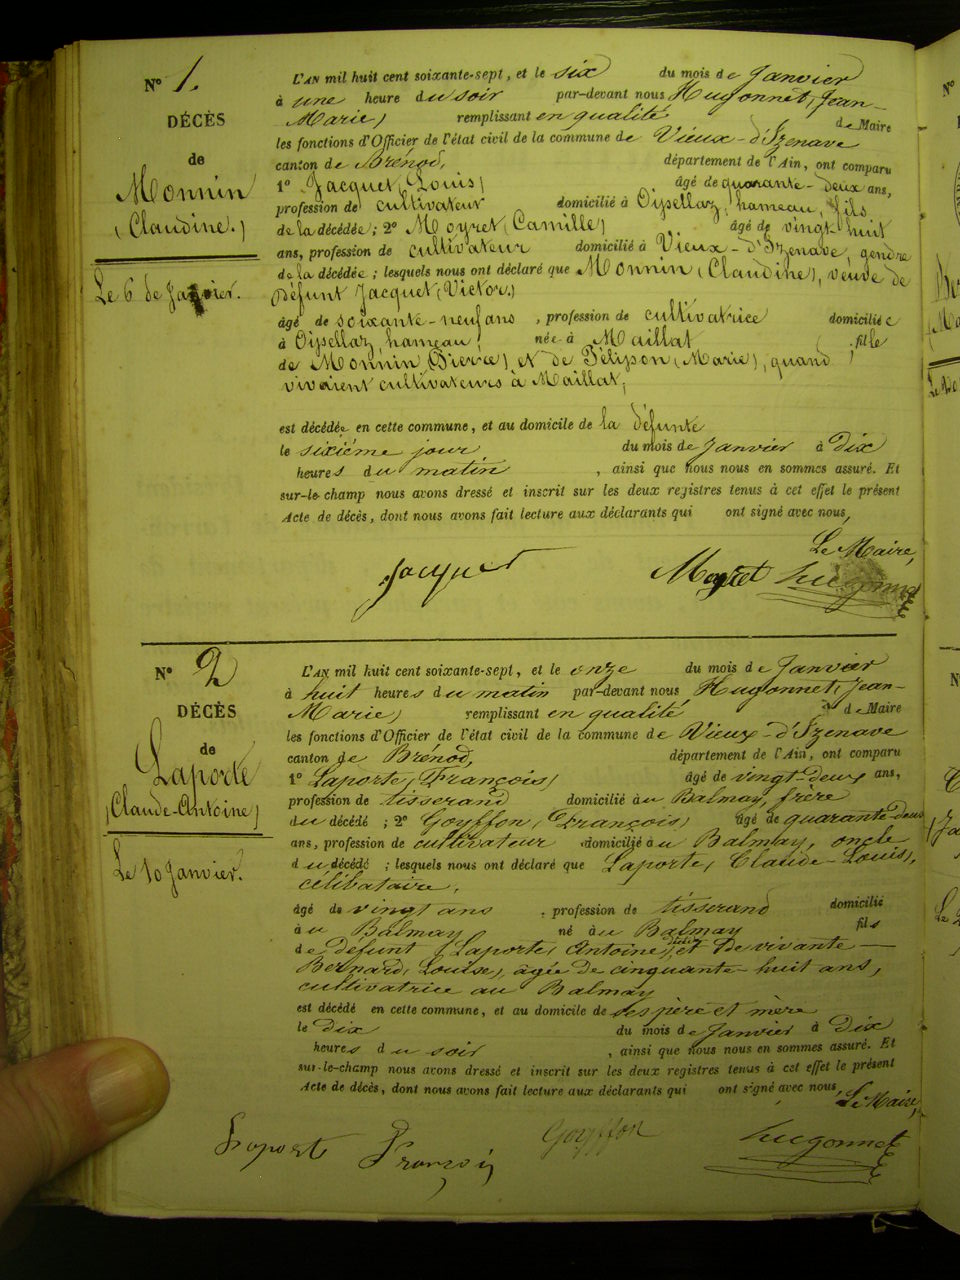 N° 1.
DÉCÈS
de
Monnin
(Claudine.)
Le 6 de Janvier.
L'AN mil huit cent soixante-sept, et le six du mois de Janvier
à une heure du soir par-devant nous Hugonnet, Jean-
Marie) remplissant en qualité de Maire
les fonctions d'Officier de l'état civil de la commune de Vieux-d'Izenave
canton de Brénod, département de l'Ain, ont comparu
1° Jacquet, Louis) âgé de quarante-deux ans,
profession de cultivateur domicilié à Oissellaz, hameau, fils
de la décédée; 2° Moyret (Camille) âgé de vingt-huit
ans, profession de cultivateur domicilié à Vieux-d'Izenave, gendre
de la décédée; lesquels nous ont déclaré que Monnin (Claudine), veuve de
défunt Jacquet (Victor.)
âgé de soixante-neuf ans, profession de cultivatrice domiciliée
à Oissellaz, hameau, née à Maillat, fille
de Monnin (Pierre) et de Pélisson (Marie), quand
vivaient cultivateurs à Maillat,
est décédée en cette commune, et au domicile de la défunte
le sixième jour du mois de Janvier à Dix
heures du matin, ainsi que nous nous en sommes assuré. Et
sur-le-champ nous avons dressé et inscrit sur les deux registres tenus à cet effet le présent
Acte de décès, dont nous avons fait lecture aux déclarants qui ont signé avec nous,
Le Maire,
Jacquet Moyret Hugonnet
N° 2
DÉCÈS
de
Laporte
(Claude-Antoine)
Le 10 Janvier.
L'AN mil huit cent soixante-sept, et le onze du mois de Janvier
à huit heures du matin par-devant nous Hugonnet, Jean-
Marie) remplissant en qualité de Maire
les fonctions d'Officier de l'état civil de la commune de Vieux-d'Izenave
canton de Brénod, département de l'Ain, ont comparu
1° Laporte, François) âgé de vingt-deux ans,
profession de tisserand domicilié au Balmay, frère
du décédé; 2° Goyffon, (François) âgé de quarante-deux
ans, profession de cultivateur domicilié au Balmay, oncle
du décédé; lesquels nous ont déclaré que Laporte, Claude-Louis),
célibataire,
âgé de vingt ans, profession de tisserand domicilié
au Balmay né au Balmay fils
de défunt (Laporte, Antoine), et de vivante
Bernard, Louise), âgée de cinquante-huit ans,
cultivatrice au Balmay
est décédé en cette commune, et au domicile de ses père et mère
le Dix du mois de Janvier à Dix
heures du soir, ainsi que nous nous en sommes assuré. Et
sur-le-champ nous avons dressé et inscrit sur les deux registres tenus à cet effet le présent
Acte de décès, dont nous avons fait lecture aux déclarants qui ont signé avec nous,
Le Maire,
Laporte François Goyffon Hugonnet